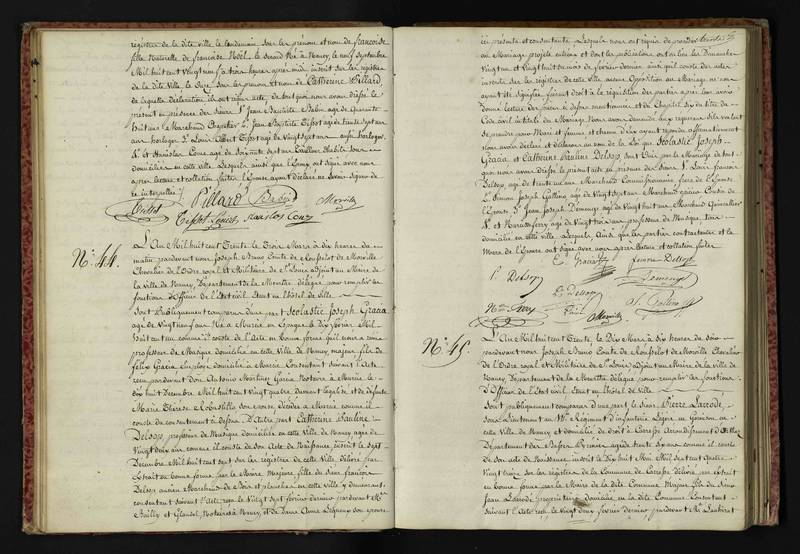 registres de la dite ville le lendemain sous les prénom et nom de françoise
fille Naturelle de françoise Noël, la seconde Née à Nancy, le neuf Septembre
Mil huit cent vingt neuf à trois heures après midi inscrit sur les registres
de la dite Ville, le Jure sous les prénom et nom de Catherine Pillard
de laquelle déclaration ont été acte, de tout quoi nous avons dressé le
présent en présence des Sieurs Jean Baptiste Babin agé de Quarante
huit ans Marchand Chapelier Jean Baptiste Tissot agé de trente sept ans
ans horloger Louis Albert Tissot agé de vingt sept ans aussi horloger
et Stanislas Cony agé de Soixante sept ans Tailleur d'habits tous
domiciliés en cette ville Lesquels ainsi que l'Epoux ont signé avec nous
après lecture et collation faites l'Epouse ayant déclaré ne savoir signer de
ce interpellée
Tissot Pillard Babin Morville
Tissot Louis Stanislas Cony
N.o 44. L'An Mil huit cent Trente le Trois Mars à dix heures du
matin pardevant nous Joseph Bruno Comte de Morville
Chevalier de l'Ordre royal et Militaire de St Louis adjoint au Maire de
la Ville de Nancy, Département de la Meurthe délégué pour remplir les
fonctions d'Officier de l'état civil Etant en l'hôtel de Ville
Sont Publiquement comparus d'une part Scolastie Joseph Gracia
agé de Vingt neuf ans Né à Murcie en Espagne le dix février Mil
huit cent un comme il conste de l'acte en bonne forme qu'il nous a remis
professeur de Musique domicilié en cette ville de Nancy majeur, fils de
félix Gracia Employé domicilié à Murcie Consentant suivant l'acte
reçu pardevant don Antonio Martinez Garcia Notaire à Murcie le
dix huit Decembre Mil huit cent vingt quatre duement légalisé et de défunte
Marie Thérèse son epouse, décédée à Murcie comme il
conste du consentement ci dessus D'Autre part Catherine Pauline
Delsop, professeur de Musique domiciliée en cette Ville de Nancy agée de
Vingt deux ans comme il conste de son Acte de Naissance inscrit le Sept
Decembre Mil huit cent sept sur les registres de cette Ville, délivré par
Extrait en bonne forme par le Maire Majeure, fille du sieur françois
Delsop ancien Marchand de Bois et planches en cette ville y demeurant
consentant suivant l'acte reçu le vingt sept février dernier pardevant Me
Bailly et Notaires à Nancy, et de dame Anne son epouse
ici présente et consentante Lesquels nous ont requis de procéder
au Mariage projeté entr'eux et dont les publications ont eu lieu les Dimanches
Vingt et vingt huit du mois de février dernier ainsi qu'il conste des actes
inscrits sur les registres de cette ville aucune Opposition au Mariage ne nous
ayant été signifiée, faisant droit à la réquisition des parties après leur avoir
donné lecture des pièces ci dessus mentionnées et du Chapitre Six du titre du
Code civil intitulé du Mariage Nous avons demandé aux requérans s'ils veulent
se prendre pour Mari et femme, et chacun d'eux ayant répondu affirmativement
nous avons déclaré et déclarons au nom de la Loi que Scolastie Joseph
Gracia et Catherine Pauline Delsop, sont Unis par le Mariage de tout
quoi nous avons dressé le présent acte en présence des Sieurs Louis françois
Delsop agé de trente un ans Marchand Commissionnaire frère de l'Epouse
Simon Joseph agé de vingt sept ans Marchand Cousin de
l'Epouse Jean Joseph Demenge agé de vingt huit ans Marchand Quincailler
et ferry agé de Vingt trois ans professeur de Musique Tous
domiciliés en cette ville Lesquels Ainsi que les parties contractantes et la
Mere de l'Epouse ont signé avec nous après lecture et collation faites
E. Gracia femme Delsop
P. Delsop Demenge
Ls Delsop
Morville
N.o 45. L'An Mil huit cent Trente le Dix Mars à dix heures du soir
pardevant nous Joseph Bruno Comte de Morville Chevalier
de l'Ordre royal et Militaire de St Louis adjoint au Maire de la ville de
Nancy Département de la Meurthe délégué pour remplir les fonctions
D'Officier de l'état civil Etant en l'hôtel de Ville
Sont publiquement comparus d'une part le Sieur Pierre Larrodé
Sous Lieutenant au Régiment d'infanterie Légère en Garnison en
cette Ville de Nancy et domicilié de droit à Carresse Arrondissement d'Orthez
Département des Basses Pyrénées agé de trente six ans comme il conste
de son acte de Naissance inscrit le Dix huit Mai Mil sept cent quatre
Vingt treize sur les registres de la Commune de Carresse délivré par Extrait
en bonne forme par le Maire de la dite Commune Majeur fils du Sieur
Jean Larrodé propriétaire domicilié en la dite Commune Consentant
suivant l'acte reçu le vingt deux février dernier pardevant Me